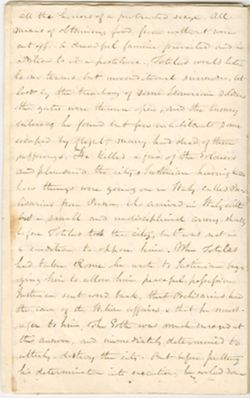 all the horrors of a protracted seige. All
means of obtaining food from without were
cut off. A dreadful famine prevailed and in
addition to it a pestilence. Totilas would listen
to no terms but unconditional surrender. At
last by the treachery of some Isaurian soldiers
the gates were thrown open, and the enemy
entering he found but few inhabitants some
escaped by flight & many had died of their
sufferings. He killed a few of the soldiers
and plundered the city. Justinian hearing
how things were going on in Italy called Bel-
lisarius from Persia. He arrived in Italy with
but a small and undisciplined army, shortly
before Totilas took the city, but was not in
a condition to oppose him. When Totilas
had taken Rome he wrote to Justinian
ging him to allow him peaceful possession
Justinian sent word back, that Belisarius had
the care of the Italian affairs & that he must
refer to him. The Goth was much enraged at
this answer, and immediately determined to
utterly destroy the city. But before putting
his determination into execution, he